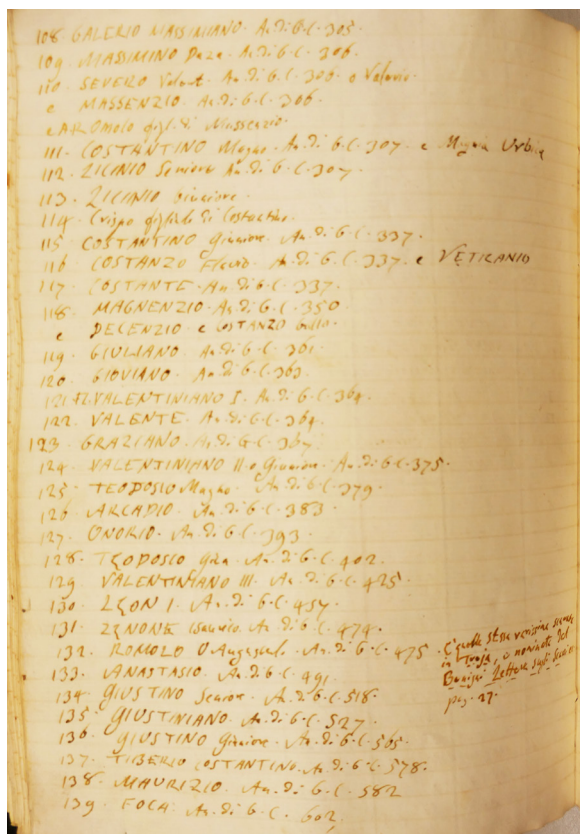 108. GALERIO MASSIMIANO. An. di G. C. 305.
109. MASSIMINO Daza. An. di G. C. 306.
110. SEVERO Valent. An. di G. C. 306. o Valerio.
e MASSENZIO. An. di G. C. 306.
e a ROMOLO figl. di Massenzio.
111. COSTANTINO Magno. An. di G. C. 307. e Magnia Urbica
112. LICINIO Seniore An. di G. C. 307.
113. LICINIO Giuniore.
114. Crispo figliolo di Costantino.
115 COSTANTINO Giuniore. An. di G. C. 337.
116 COSTANZO Flavio. An. di G. C. 337. e VETRANIO
117. COSTANTE. An. di G. C. 337.
118. MAGNENZIO. An. di G. C. 350
e DECENZIO e COSTANZO Gallo.
119. GIULIANO. An. di G. C. 361.
120. GIOVIANO. An. di G. C. 363.
121 VALENTINIANO I. An. di G. C. 364.
122. VALENTE. An. di G. C. 364.
123. GRAZIANO. An. di G. C. 367
124. VALENTINIANO II o Giuniore. An. di G. C. 375.
125. TEODOSIO Magno. An. di G. C. 379.
126. ARCADIO. An. di G. C. 383.
127. ONORIO. An. di G. C. 393.
128. TEODOSIO Giun. An. di G. C. 402.
129 VALENTINIANO III. An. di G. C. 425.
130. LEON I. An. di G. C. 457.
131. ZENONE Isaurico. An. di G. C. 474.
132. ROMOLO O Augustul. An. di G. C. 475
133. ANASTASIO. An. di G. C. 491.
134. GIUSTINO Seniore. An. di G. C. 518.
135. GIUSTINIANO. An. di G. C. 527.
136. GIUSTINO Giuniore. An. di G. C. 565.
137. TIBERIO COSTANTINO. An. di G. C. 578.
138. MAURIZIO. An. di G. C. 582
139. FOCA. An. di G. C. 602.
E quelle stesse
in Troja, o nominate dal
Lettera sugli
pag. 27.